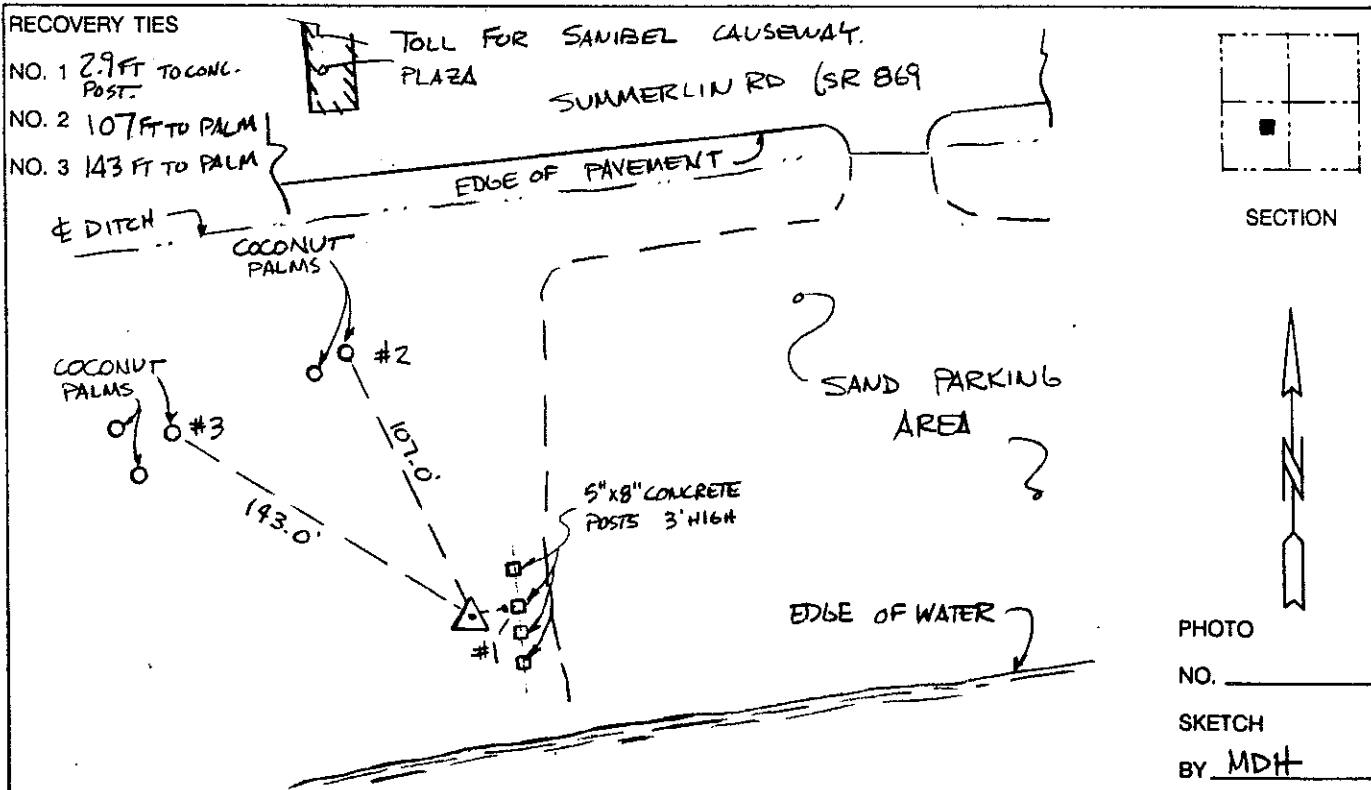 RECOVERY TIES
NO. 1 2.9 FT TO CONC.
POST.
NO. 2 107 FT TO PALM
NO. 3 143 FT TO PALM
TOLL FOR SANIBEL CAUSEWAY.
PLAZA
SUMMERLIN RD (SR 869
EDGE OF PAVEMENT
℄ DITCH
COCONUT
PALMS
#2
COCONUT
PALMS
#3
107.0'
143.0'
5"x8" CONCRETE
POSTS 3' HIGH
#1
SAND PARKING
AREA
EDGE OF WATER
SECTION
N
PHOTO
NO.
SKETCH
BY MDH